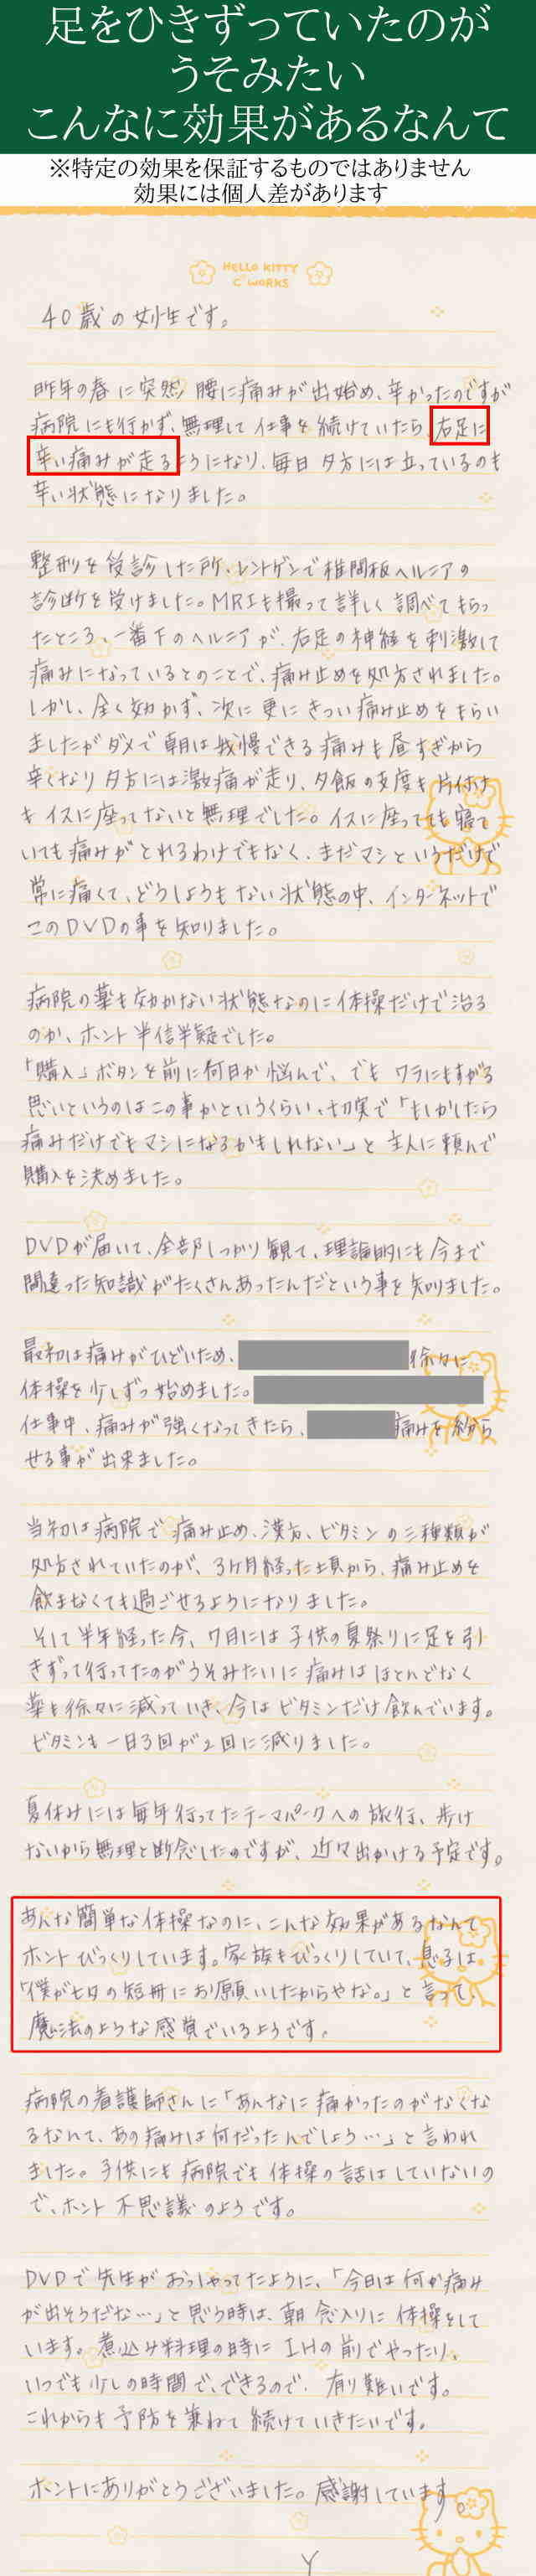 足をひきずっていたのが
うそみたい
こんなに効果があるなんて
※特定の効果を保証するものではありません
効果には個人差があります
HELLO KITTY
C WORKS
40歳の女性です。
昨年の春に突然、腰に痛みが出始め、辛かったのですが
病院にも行かず、無理して仕事を続けていたら、右足に
辛い痛みが走るようになり、毎日夕方には立っているのも
辛い状態になりました。
整形を受診した所、レントゲンで椎間板ヘルニアの
診断を受けました。MRIも撮って詳しく調べてもらっ
たところ、一番下のヘルニアが、右足の神経を刺激して
痛みになっているとのことで、痛み止めを処方されました。
しかし、全く効かず、次に更にきつい痛み止めをもらい
ましたがダメで朝は我慢できる痛みも昼すぎから
辛くなり夕方には激痛が走り、夕飯の支度も片付け
もイスに座ってないと無理でした。イスに座ってても寝て
いても痛みがとれるわけでもなく、まだマシというだけで
常に痛くて、どうしようもない状態の中、インターネットで
このDVDの事を知りました。
病院の薬も効かない状態なのに体操だけで治る
のか、ホント半信半疑でした。
「購入」ボタンを前に何日か悩んで、でもワラにもすがる
思いというのはこの事かというくらい、切実で「もしかしたら
痛みだけでもマシになるかもしれない」と主人に頼んで
購入を決めました。
DVDが届いて、全部しっかり観て、理論的にも今まで
間違った知識がたくさんあったんだという事を知りました。
最初は痛みがひどいため、 徐々に
体操を少しずつ始めました。
仕事中、痛みが強くなってきたら、 痛みを紛ら
せる事が出来ました。
当初は病院で痛み止め、漢方、ビタミンの三種類が
処方されていたのが、3ヶ月経った頃から、痛み止めを
飲まなくても過ごせるようになりました。
そして半年経った今、7月には子供の夏祭りに足を引
きずって行ってたのがうそみたいに痛みはほとんどなく
薬も徐々に減っていき、今はビタミンだけ飲んでいます。
ビタミンも一日3回が2回に減りました。
夏休みには毎年行ってたテーマパークへの旅行、歩け
ないから無理と断念したのですが、近々出かける予定です。
あんな簡単な体操なのに、こんな効果があるなんて
ホントびっくりしています。家族もびっくりしていて、息子は
「僕が七夕の短冊にお願いしたからやな。」と言って、
魔法のような感覚でいるようです。
病院の看護師さんに「あんなに痛かったのがなくな
るなんて、あの痛みは何だったんでしょう…」と言われ
ました。子供にも病院でも体操の話はしていないの
で、ホント不思議のようです。
DVDで先生がおっしゃってたように、「今日は何か痛み
が出そうだな…」と思う時は、朝念入りに体操をして
います。煮込み料理の時にIHの前でやったり、
いつでも少しの時間で、できるので、有り難いです。
これからも予防を兼ねて続けていきたいです。
ホントにありがとうございました。感謝しています。
Y